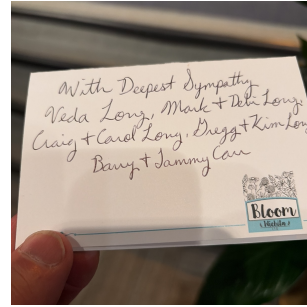 With Deepest Sympathy
Veda Long, Mark + Debi Long,
Craig + Carol Long, Gregg + Kim Lon
Barry + Tammy Carr
Bloom
Wichita